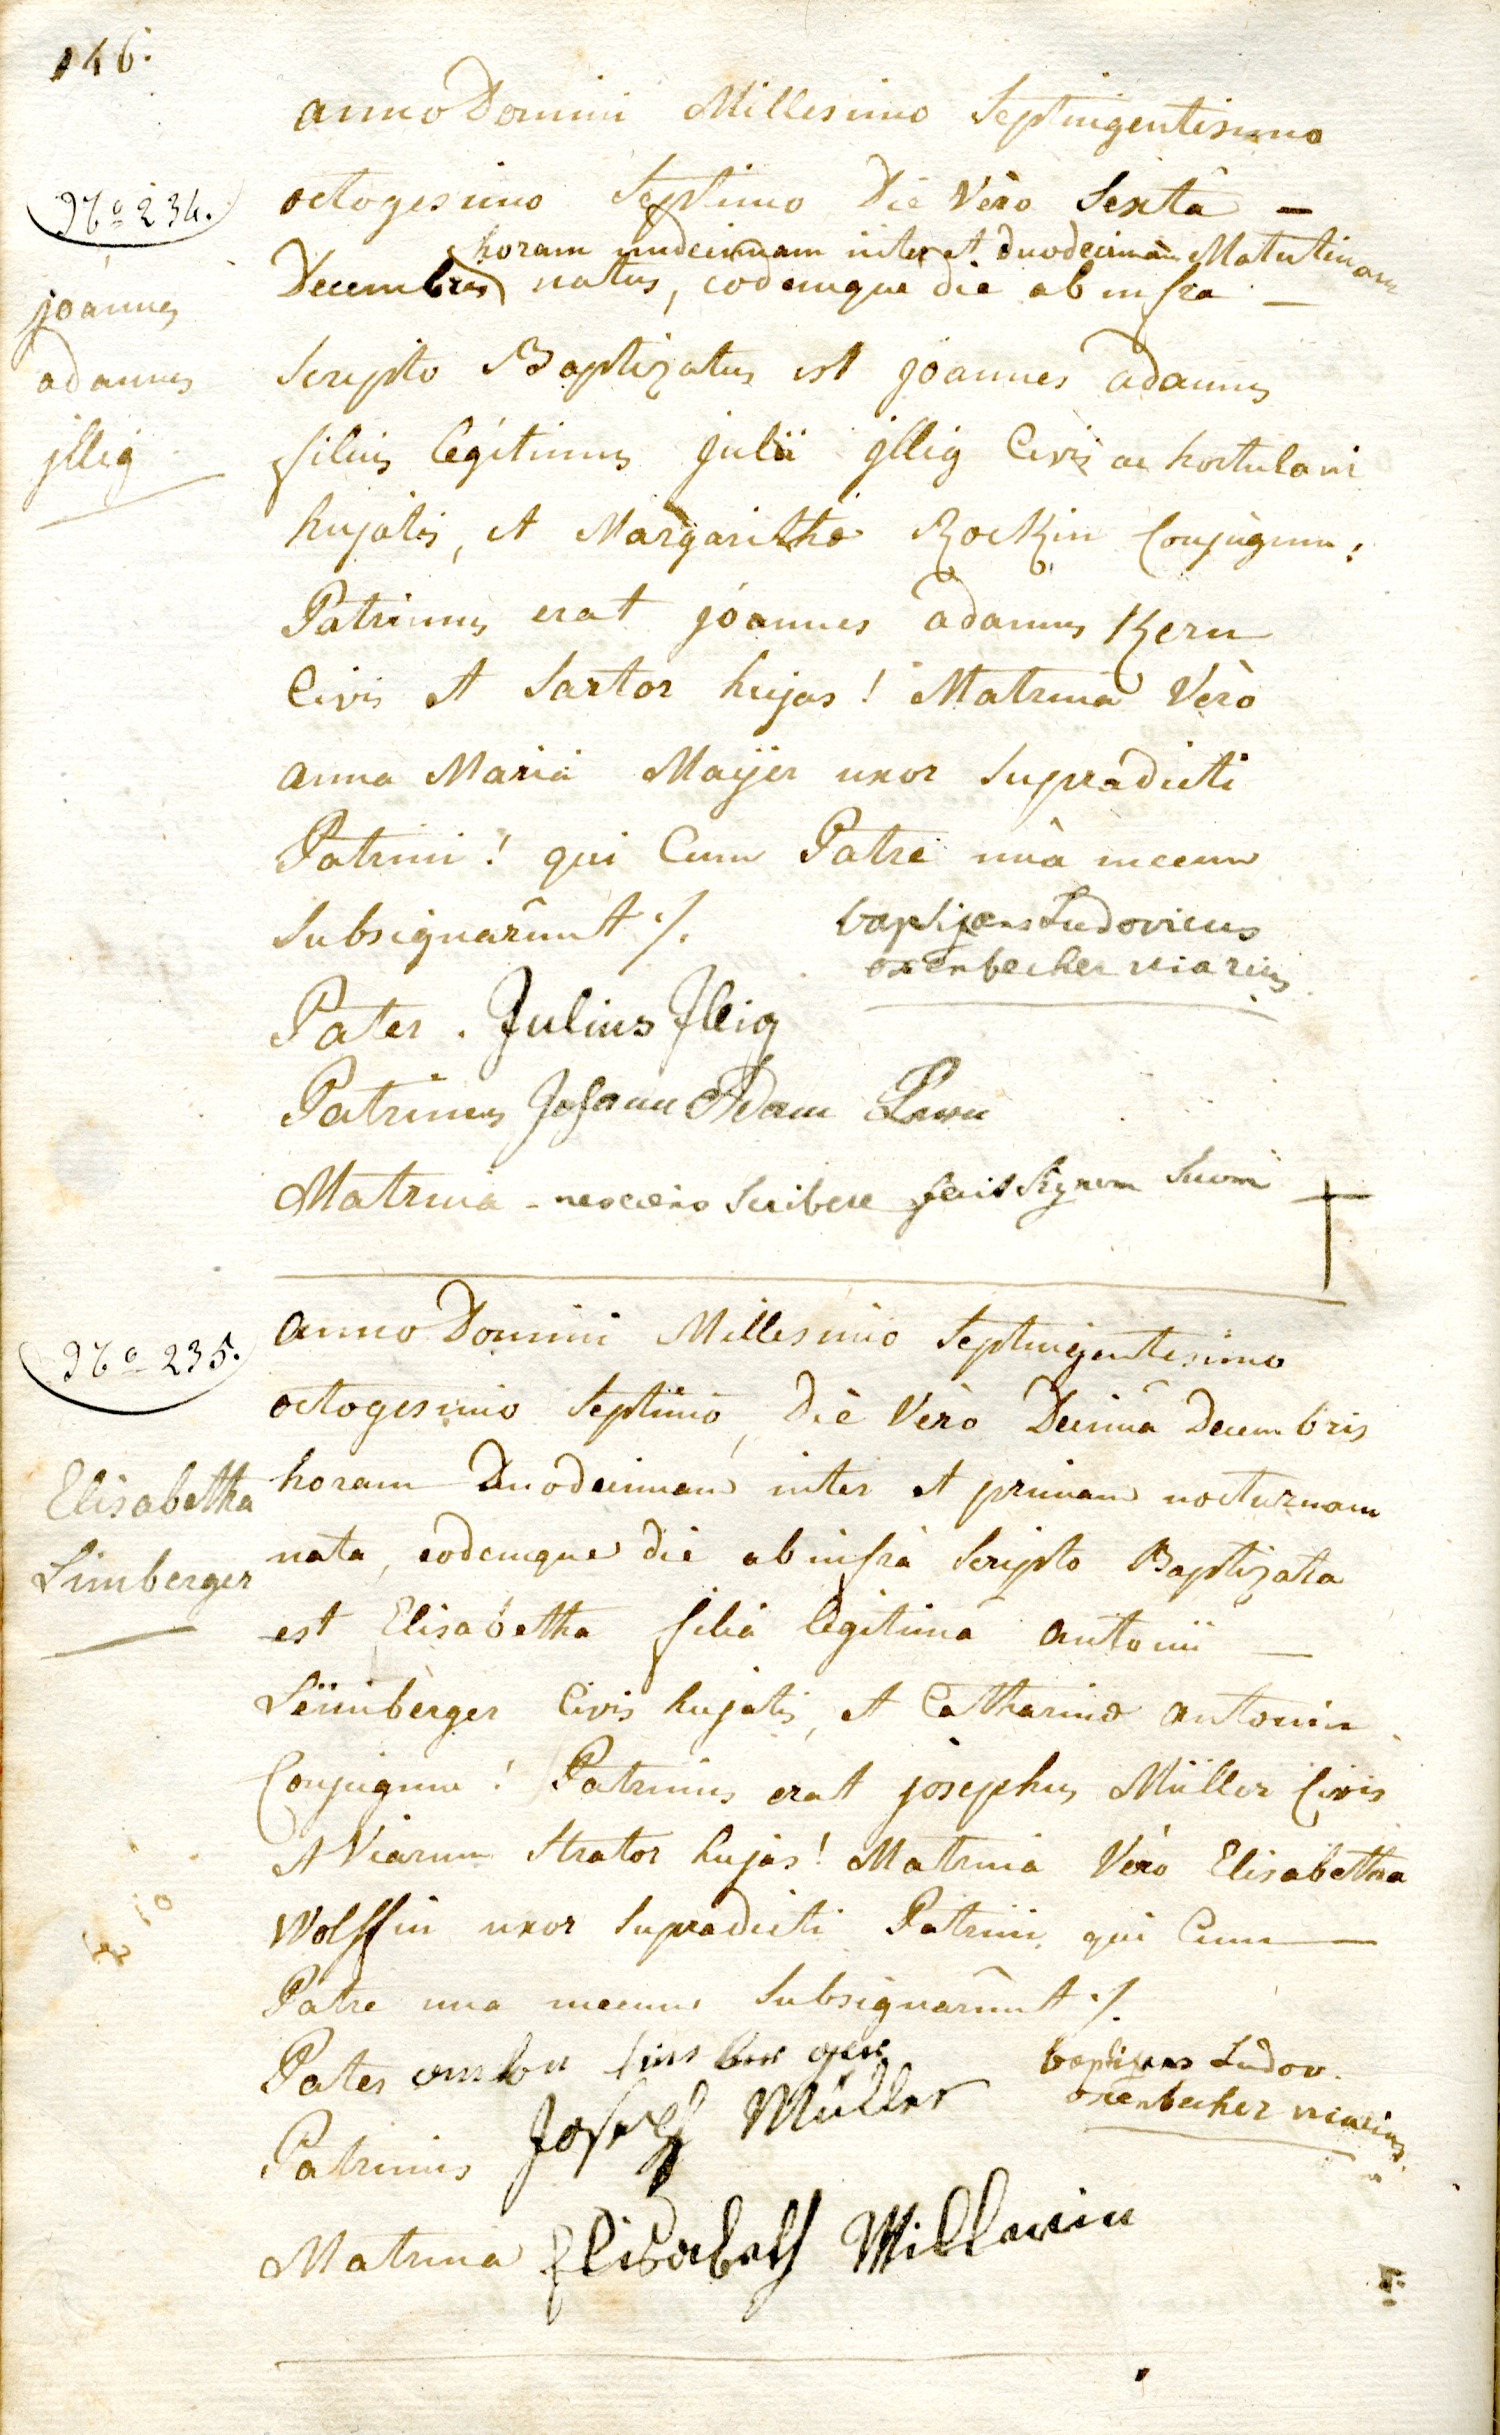 146.
anno Domini Millesimo Septingentisimo
octogesimo Septimo Die Vèro Sextâ –
horam undecimam inter et duodecimam Matutinam
Decembris natus, eodemque die ab infra –
Scripto Baptizatus est joannes adamus
filius legitimus julii jllig Civis ac hortulani
hujatis, et Margarithæ Rockin Conjugum!
Patrinus erat jóannes adamus Kern
Civis et Sartor hujas! Matrina Verò
anna Maria Maÿer uxor Supradicti
Patrini! qui Cum Patre unà mecum
Subsignarûnt ·/.
baptizans Ludovicus
oxenbecher vicarius
Pater . Julius Jllig
Patrinus Johann Adam Kern
Matrina – nesciens Scribere fecit Signum Suum †
No 234.
joannes
adamus
jllig
anno Domini Millesimo Septingentesimo
octogesimo Septimo, Diè Verò Decimâ Decembris
horam Duodecimam inter et primam nocturnam
nata, eodemque die ab infrà Scripto Baptizata
est Elisabetha filia legitima antonii –
Limberger Civis hujatis, et Catharinæ antonin
Conjugum! Patrinus erat josephus Müller Civis
et Viarum Strator hujas! Matrina Vèrò Elisabetha
Wolffin uxor Supradicti Patrini, qui Cum –
Patre una mecum Subsignarûnt ·/.
Pater
baptizans Ludov.
oxenbecher vicarius
Patrinus Joseph Müller
Matrina Elisabeth Millerin
No 235.
Elisabetha
Limberger